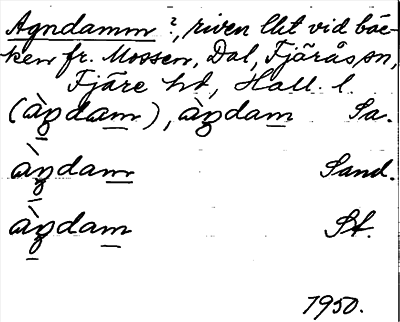 Agndamm ?, riven lht vid bäc-
ken fr. Mossen, Dal, Fjärås sn,
Fjäre hd, Hall. l.
(àŋdam), àŋdam Sa.
àŋdam Sand.
àŋdam St.
1950.